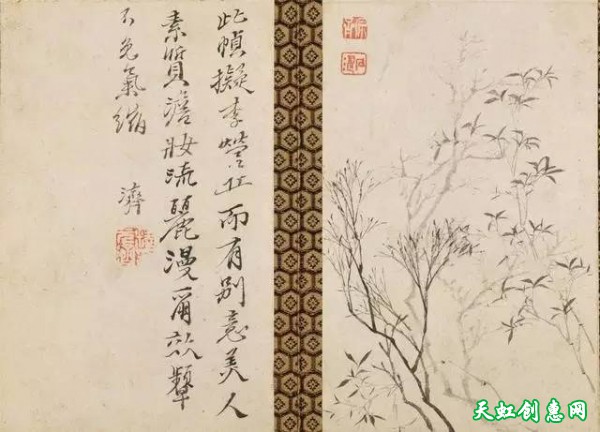 此幀擬李營丘而有別意美人
素質澹妝流麗漫爾效顰
不免氣
濟
天虹创惠网